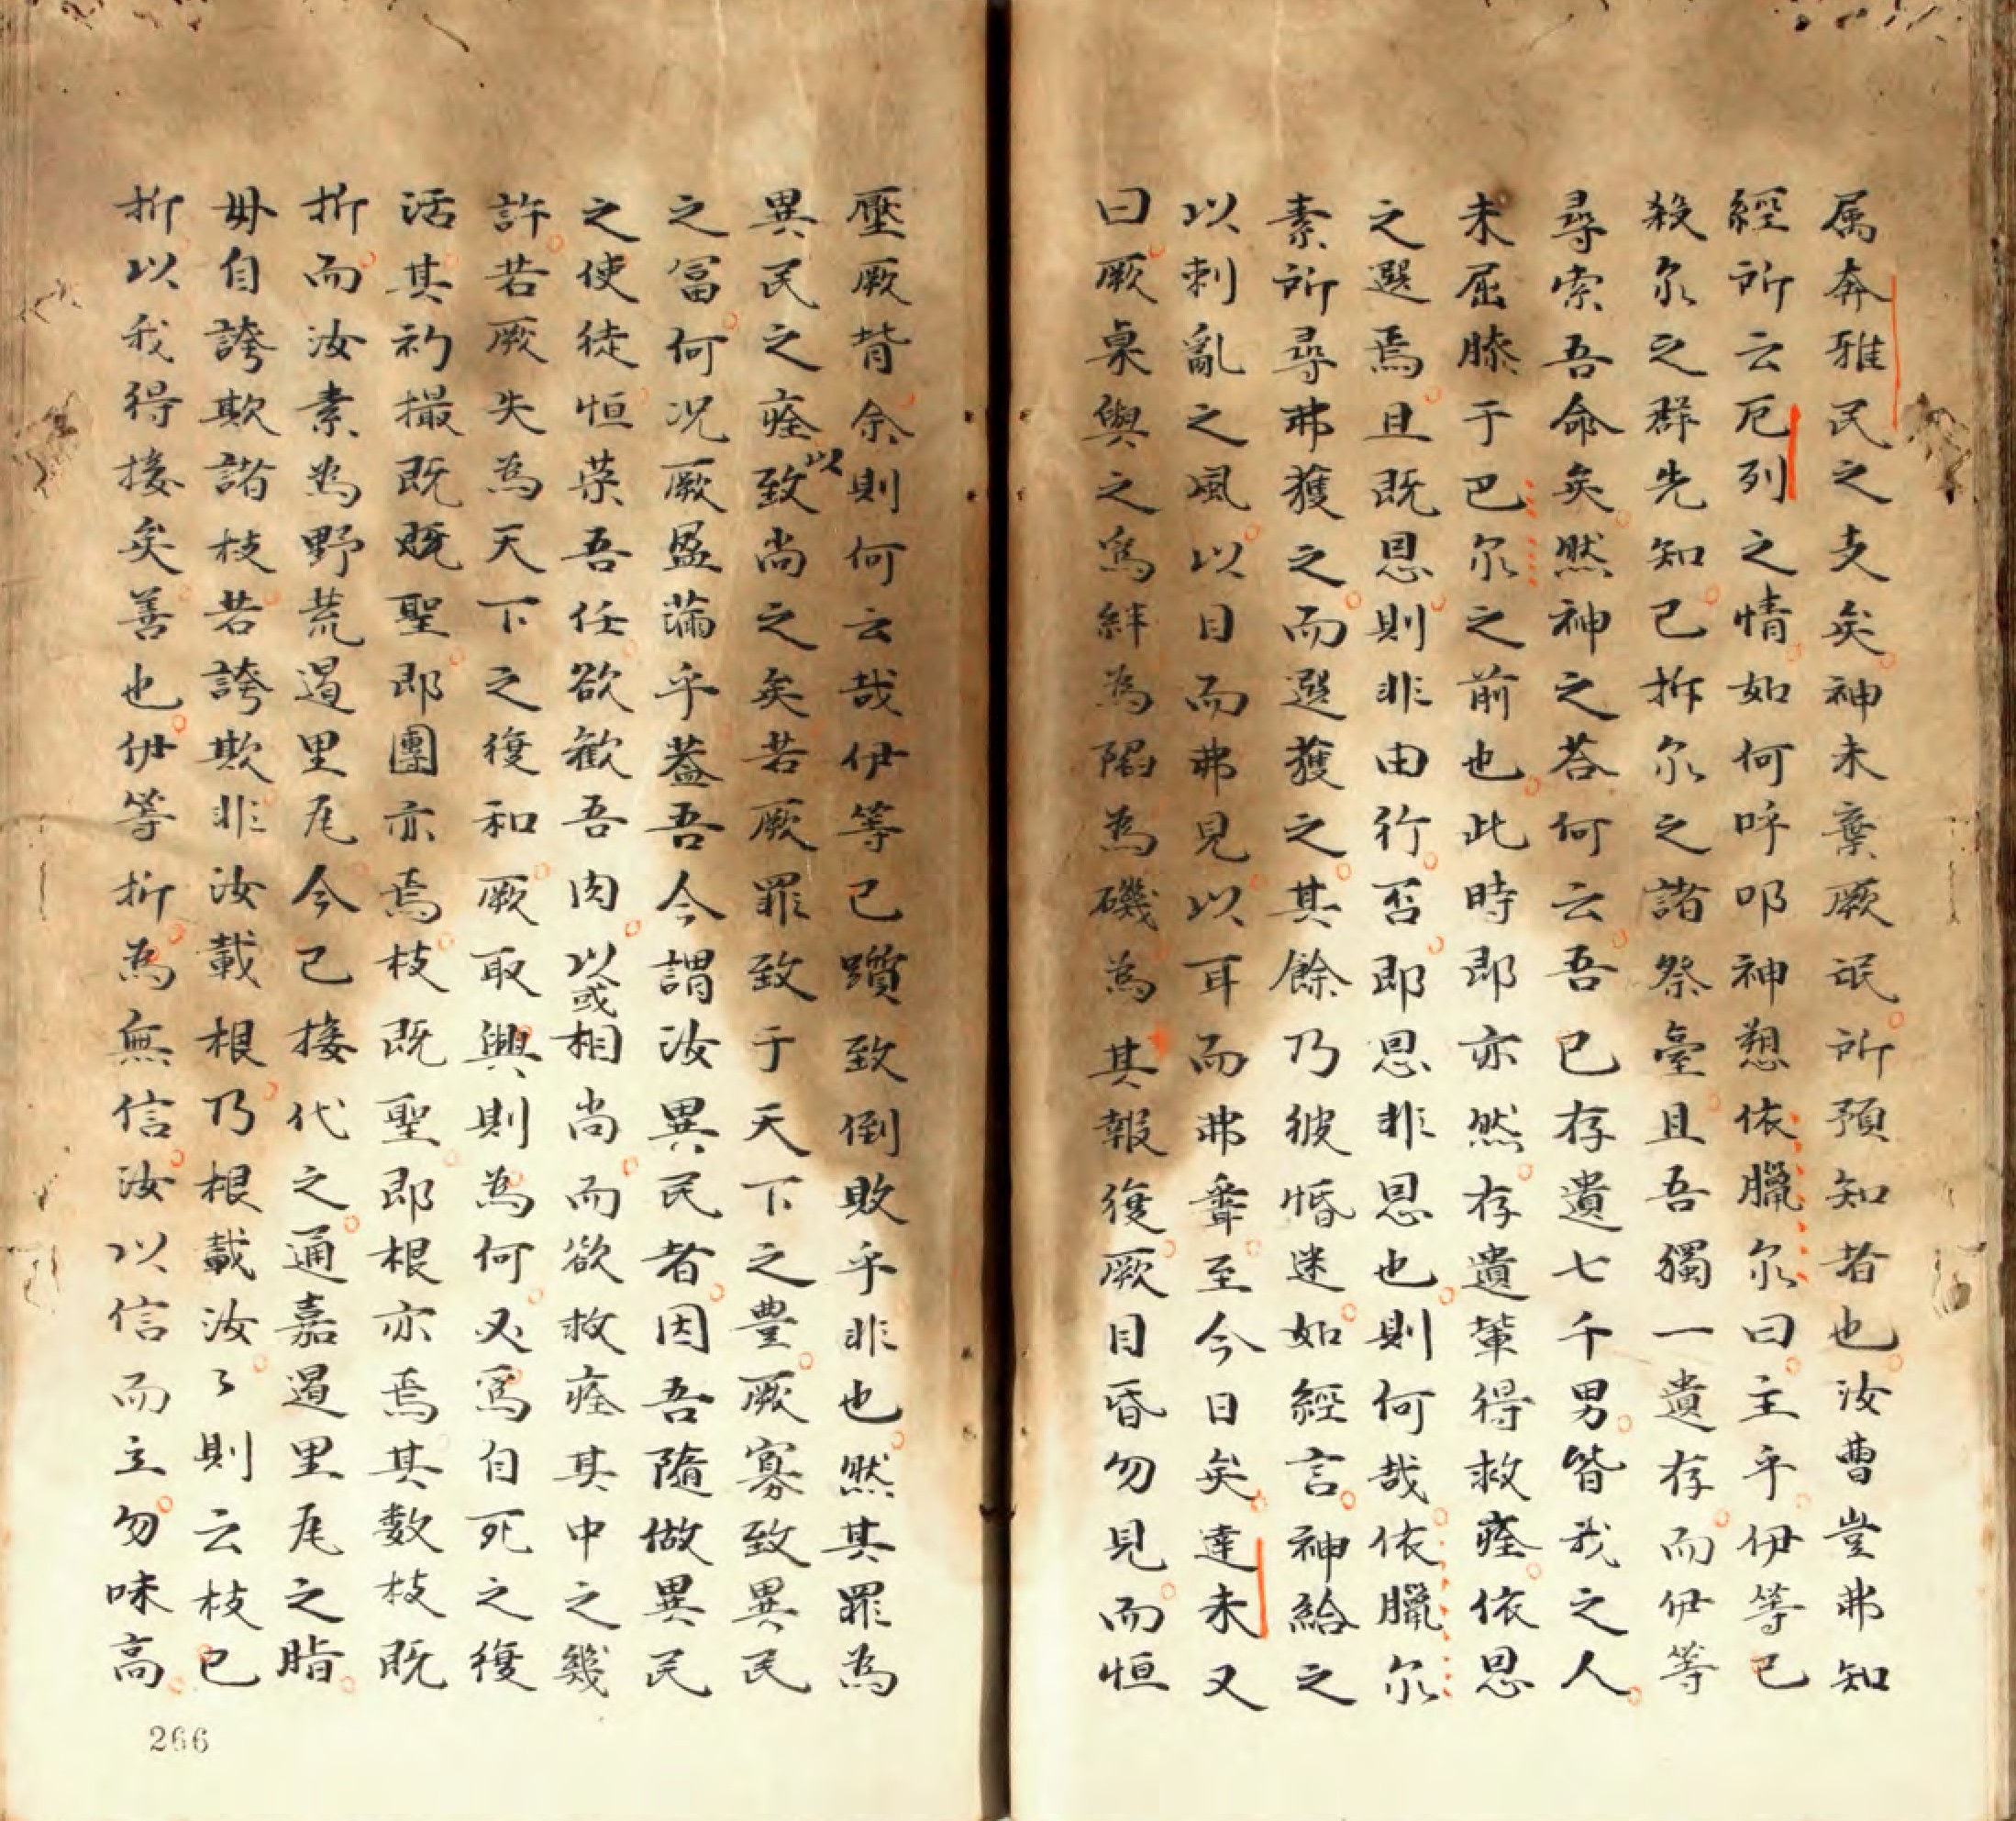 属奔雅民之支矣神未棄厥氓所預知者也汝曹豈弗知
經所云厄列之情如何呼叩神愬依臘尔曰主乎伊等已
殺尔之群先知已拆尔之諸祭臺且吾獨一遺存而伊等
尋索吾命矣然神之荅何云吾已存遺七千男皆我之人
未屈膝于巴尔之前也此時即亦然存遺輩得救痊依恩
之選焉且既恩則非由行否即恩非恩也則何哉依臘尔
素所尋弗獲之而選獲之其餘乃彼惛迷如經言神給之
以刺亂之風以目而弗見以耳而弗聋至今日矣達未又
曰厥桌與之為絆為陷為磯為其報復厥目昏勿見而恒
壓厥背余則何云哉伊等已躓致倒敗乎非也然其罪為
異民之痊以致尚之矣若厥罪致于天下之豊厥寡致異民
之冨何况厥盈滿乎葢吾今謂汝異民者因吾隨做異民
之使徒恒荣吾任欲歡吾肉以或相尚而欲救痊其中之幾
許若厥失為天下之復和厥取與則為何必為自死之復
活其礿撮既既聖即團亦焉枝既聖即根亦焉其数枝既
折而汝素為野荒遏里尾今已接代之通嘉遏里尾之脂
毋自誇欺諸枝若誇欺非汝載根乃根載汝〻則云枝已
折以我得接矣善也伊等折為無信汝以信而立勿味高
266